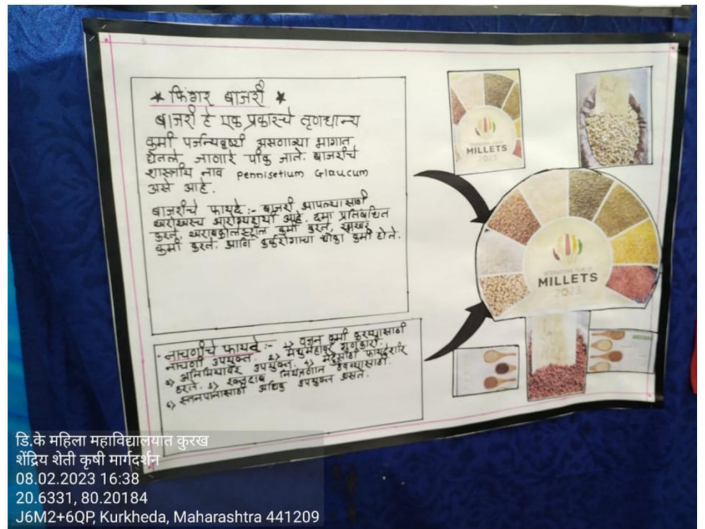 * फिंगर बाजरी *
बाजरी हे एक प्रकारचे तृणधान्य
कमी पर्जन्यवृष्टी असणाऱ्या भागात
घेतले जाणारे पीक जाते. बाजरीचे
शास्त्रीय नाव Pennisetium Glaucum
असे आहे.
बाजरीचे फायदे :- बाजरी आपल्यासाठी
खरोखरच आरोग्यदायी आहे. दमा प्रतिबंधित
करते. खराबकोलेस्ट्रॉल कमी करते, साखर
कमी करते. आणि कर्करोगाचा धोका कमी होतो.
नाचणीचे फायदे :- १) वजन कमी करण्यासाठी
नाचणी उपयुक्त. २) मधुमेहावर गुणकारी.
३) अनिमियावर उपयुक्त. ४) मेंदूसाठी फायदेशीर
ठरते. ५) रक्तदाब नियंत्रणात ठेवण्यासाठी.
६) स्तनपानासाठी अधिक उपयुक्त असते.
MILLETS
2023
INTERNATIONAL YEAR OF
MILLETS
2023
डि.के महिला महाविद्यालयात कुरख
शेंद्रिय शेती कृषी मार्गदर्शन
08.02.2023 16:38
20.6331, 80.20184
J6M2+6QP, Kurkheda, Maharashtra 441209